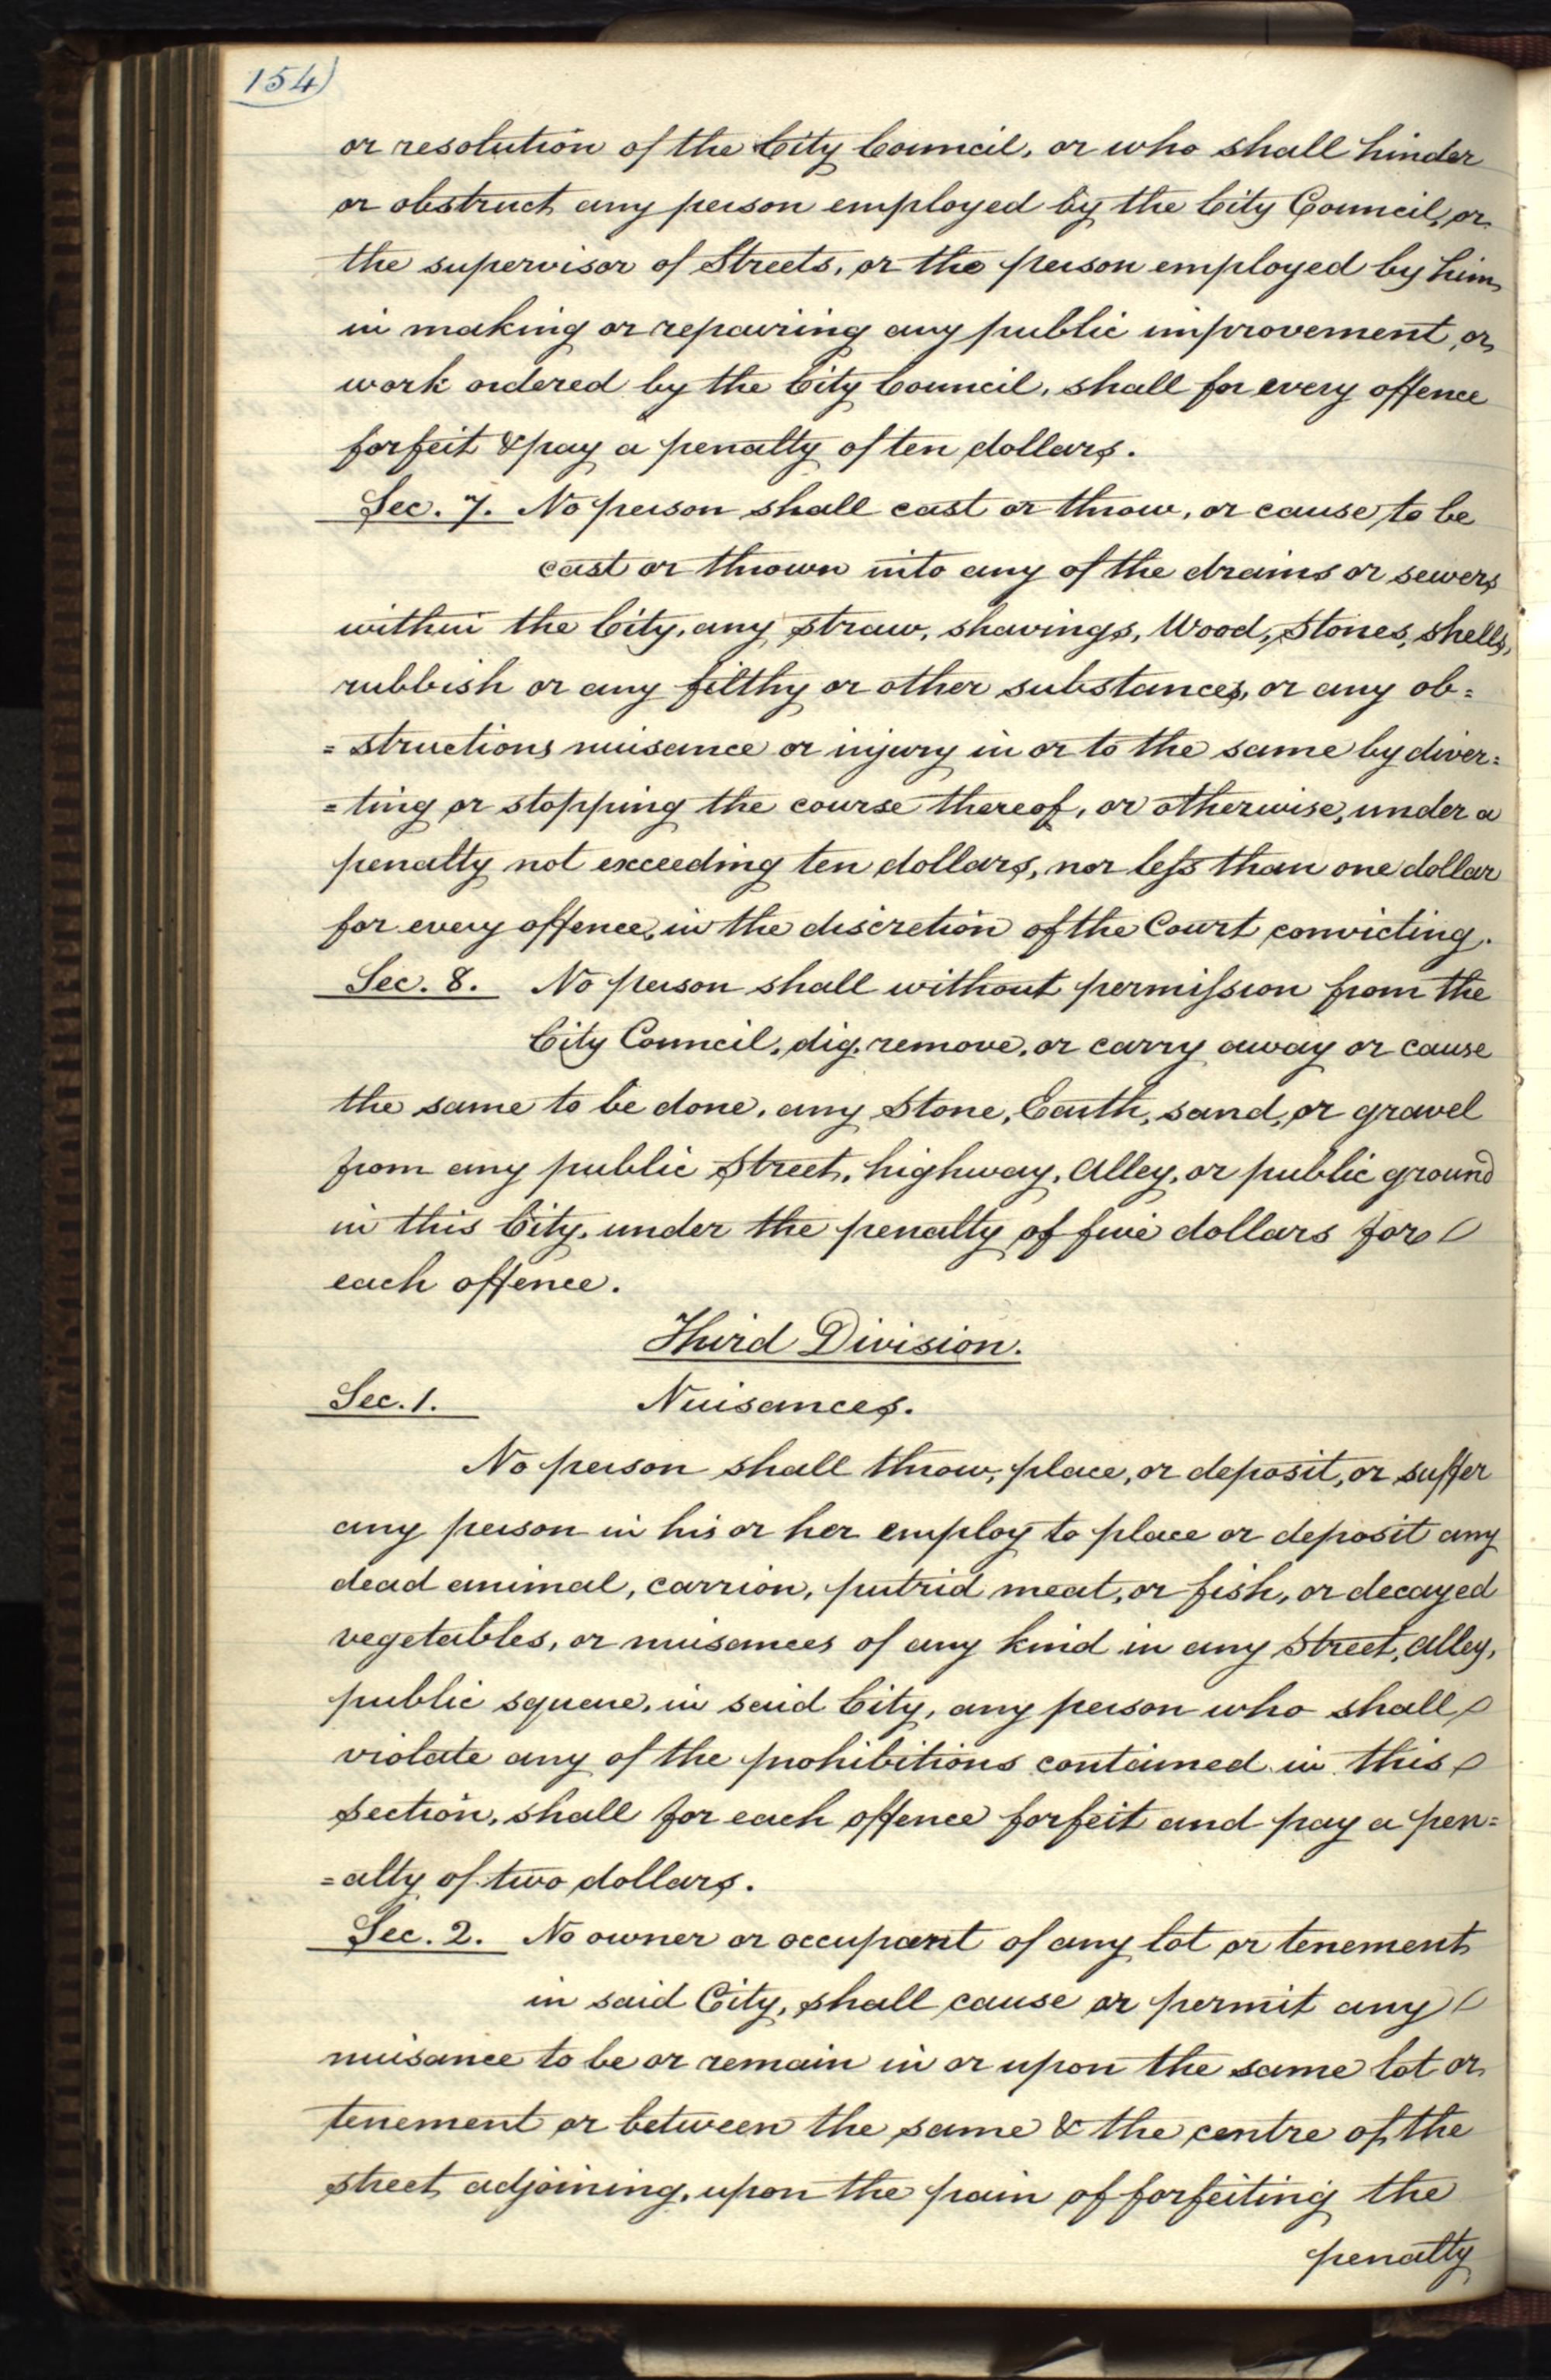 154)
or resolution of the City Council, or who shall hinder
or obstruct any person employed by the City Council, or
the supervisor of Streets, or the person employed by him,
in making or repairing any public improvement, or
work ordered by the City Council, shall for every offence
forfeit & pay a penalty of ten dollars.
Sec. 7. No person shall cast or throw, or cause to be
cast or thrown into any of the drains or sewers
within the City, any straw, shavings, Wood, Stones, shells,
rubbish or any filthy or other substances, or any ob=
=structions nuisance or injury in or to the same by diver=
=ting or stopping the course thereof, or otherwise, under a
penalty not exceeding ten dollars, nor less than one dollar
for every offence, in the discretion of the Court convicting.
Sec. 8. No person shall without permission from the
City Council, dig, remove, or carry away or cause
the same to be done, any Stone, Earth, sand, or gravel
from any public Street, highway, Alley, or public ground
in this City, under the penalty of five dollars for
each offence.
Third Division.
Sec. 1. Nuisances.
No person shall throw, place, or deposit, or suffer
any person in his or her employ to place or deposit any
dead animal, carrion, putrid meat, or fish, or decayed
vegetables, or nuisances of any kind in any Street, Alley,
public square, in said City, any person who shall
violate any of the prohibitions contained in this
section, shall for each offence forfeit and pay a pen=
=alty of two dollars.
Sec. 2. No owner or occupant of any lot or tenement
in said City, shall cause or permit any
nuisance to be or remain in or upon the same lot or
tenement or between the same & the centre of the
street adjoining, upon the pain of forfeiting the
penalty